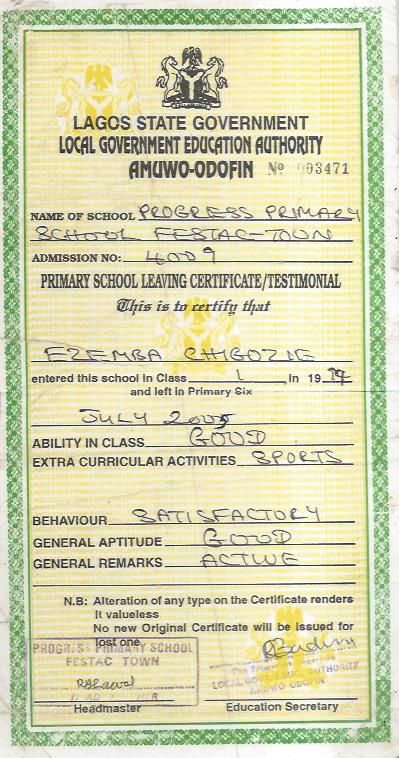 LAGOS STATE GOVERNMENT
LOCAL GOVERNMENT EDUCATION AUTHORITY
AMUWO-ODOFIN № 003471
NAME OF SCHOOL PROGRESS PRIMARY
SCHOOL FESTAC-TOWN
ADMISSION NO: 4009
PRIMARY SCHOOL LEAVING CERTIFICATE/TESTIMONIAL
This is to certify that
EZEMBA CHIGOZIE
entered this school in Class 1 in 1999
and left in Primary Six
JULY 2005
ABILITY IN CLASS GOOD
EXTRA CURRICULAR ACTIVITIES SPORTS
BEHAVIOUR SATISFACTORY
GENERAL APTITUDE GOOD
GENERAL REMARKS ACTIVE
N.B: Alteration of any type on the Certificate renders
it valueless
No new Original Certificate will be issued for
lost one
PROGRESS PRIMARY SCHOOL
FESTAC TOWN
LOCAL GOVERNMENT EDUCATION AUTHORITY
AMUWO ODOFIN
Headmaster Education Secretary